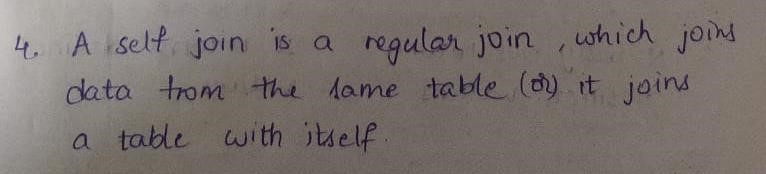 4. A self join is a regular join, which joins
data from the same table (or) it joins
a table with itself.